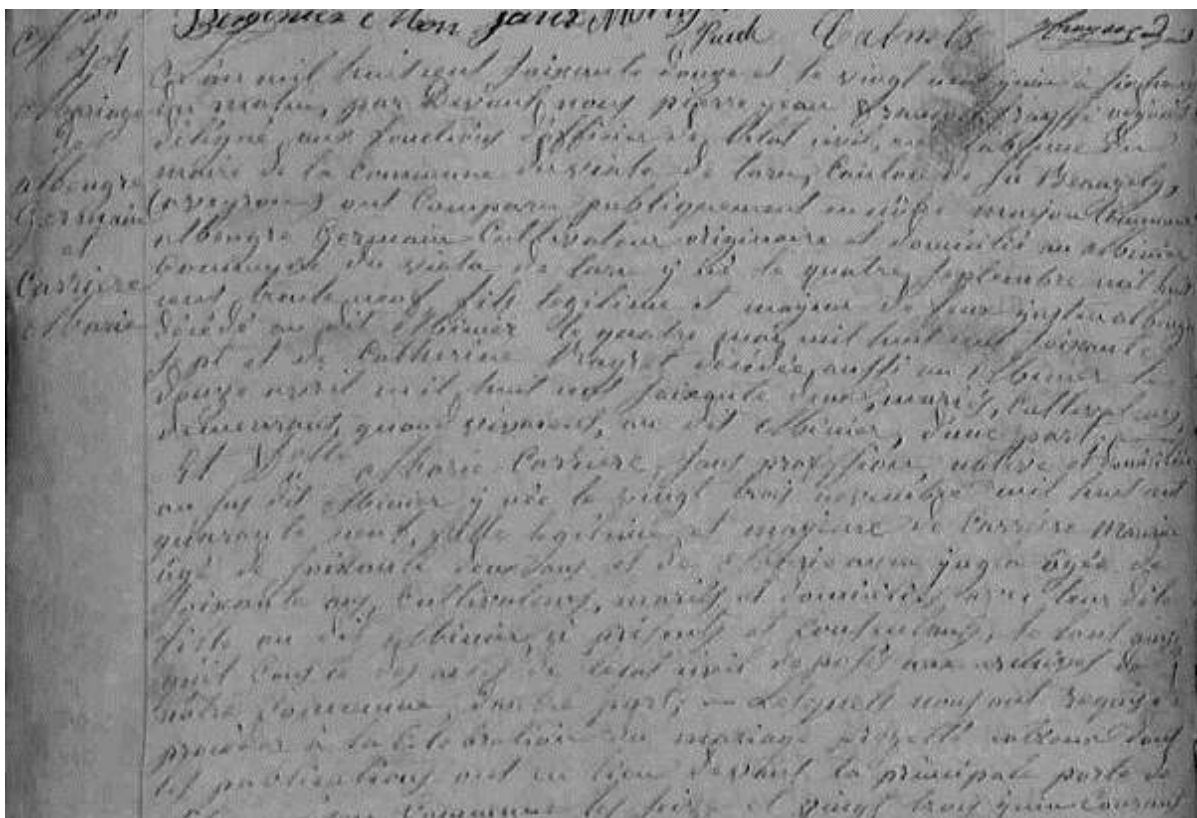 Mariage
de
Albengre
Germain
et
Carrière
Marie
L'an mil huit cent soixante douze et le vingt neuf juin à six heures
du matin, par Devant nous pierre jean adjoint
délégué aux fonctions d'officier de l'état civil, en l'absence du
maire de la Commune du viala de tarn, Canton de St Beauzely,
(aveyron) ont Comparu publiquement en nôtre maison Commune
Albengre Germain Cultivateur originaire et domicilié au Albinier
Commune du viala de tarn y né le quatre septembre mil huit
cent trente neuf, fils legitime et majeur de feux albengre
décédé au dit Albinier le quatre mai mil huit cent soixante
sept et de Catherine décédée aussi au Albinier le
douze avril mil huit cent soixante deux, mariés, Cultivateurs,
demeurant, quand vivaient, au dit Albinier, d'une part;
Et Dlle Marie Carrière, sans profession, native et domiciliée
au sus dit Albinier y née le vingt trois novembre mil huit cent
quarante neuf, fille legitime et majeure de Carrière
âgé de soixante deux ans et de Marie âgée de
soixante ans, Cultivateurs, mariés et domiciliés avec leur dite
fille au dit Albinier, ci présents et Consentants, le tout ainsi
qu'il Conste des actes de l'état civil déposés aux archives de
nôtre Commune, d'autre part; — Lesquels nous ont requis de
procéder à la Célébration du mariage projetté entreux dont
les publications ont eu lieu devant la principale porte de
Commune les seize et vingt trois juin Courant